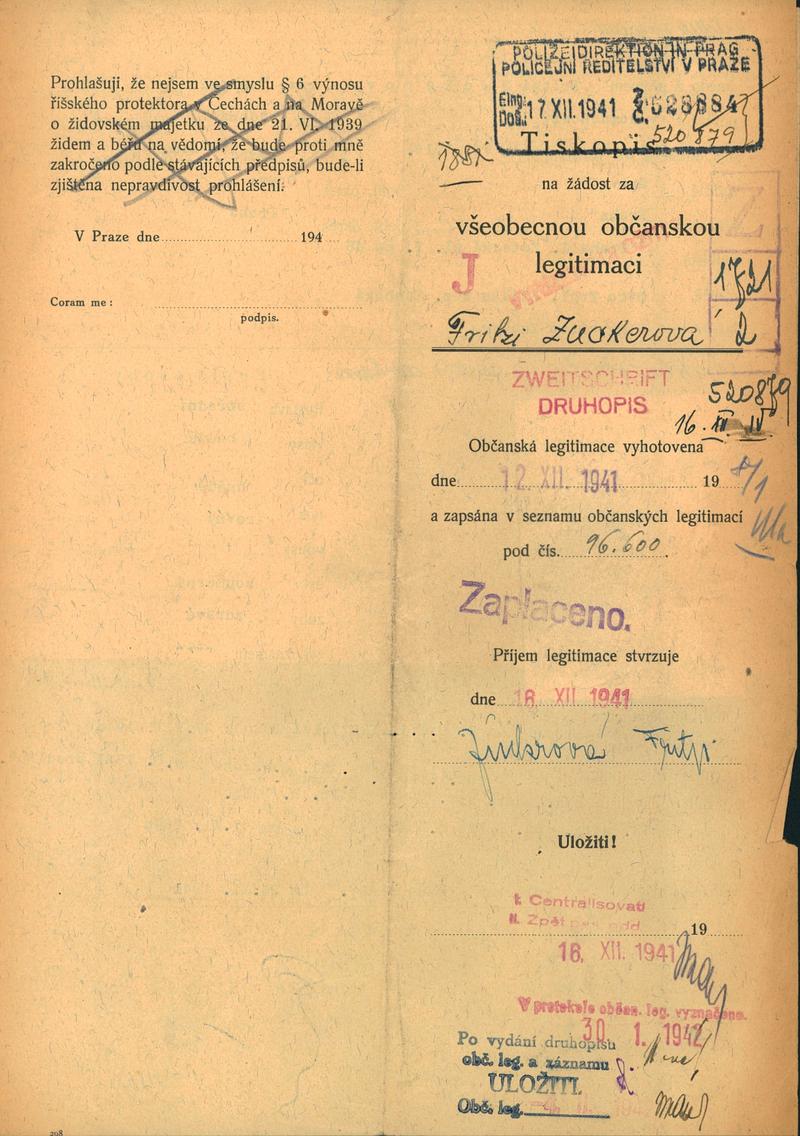 Prohlašuji, že nejsem ve smyslu § 6 výnosu
říšského protektora v Čechách a na Moravě
o židovském majetku ze dne 21. VI. 1939
židem a béřu na vědomí, že bude proti mně
zakročeno podle stávajících předpisů, bude-li
zjištěna nepravdivost prohlášení.
V Praze dne 194
Coram me :
podpis.
298
POLIZEIDIREKTION IN PRAG
POLICEJNÍ ŘEDITELSTVÍ V PRAZE
Eing.
Doš. 17 XII. 1941
Tiskopis
520879
na žádost za
všeobecnou občanskou
J
legitimaci
1721
Fritzi Zuckerová
2
ZWEITSCHRIFT
DRUHOPIS
520879
16.
Občanská legitimace vyhotovena
dne 12. XII. 1941 19
a zapsána v seznamu občanských legitimací
pod čís. 96.600.
Zaplaceno.
Příjem legitimace stvrzuje
dne 18. XII 1941
Uložiti!
I. Centralisovati
II. Zpět
19
16. XII. 1941
V protokole občan. leg. vyznačeno.
30. 1. 1942
Po vydání druhopisu
obč. leg. a záznamu
ULOŽITI.
Obč. leg.